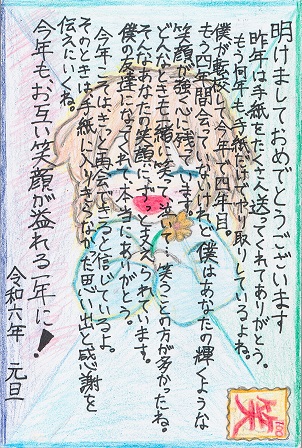 明けましておめでとうございます
昨年は手紙をたくさん送ってくれてありがとう。
もう何年も、手紙だけでやり取りしているよね。
僕が転校して今年で四年目。
もう四年間会っていないけれど、僕はあなたの輝くような
笑顔が強く心に残っています。
どんなときも一緒に笑って、ことの方が多かったね。
そんなあなたの笑顔にずっと支えられています。
僕の友達になってくれて本当にありがとう。
今年こそはきっと再会できると信じているよ。
そのときは手紙に入りきらなかった思い出と感謝を
伝えにいくね。
今年も、お互い笑顔が溢れる一年に!
令和六年 元旦